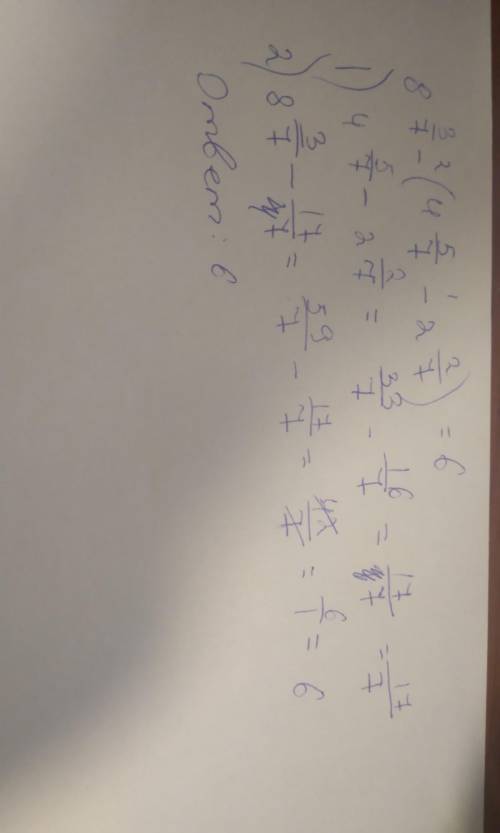 8 3/7 -² (4 5/7 -¹ 2 2/7) = 6
1) 4 5/7 - 2 2/7 = 33/7 - 16/7 = 17/7 = 17/7
2) 8 3/7 - 17/7 = 59/7 - 17/7 = 42/7 = 6/1 = 6
Ответ: 6